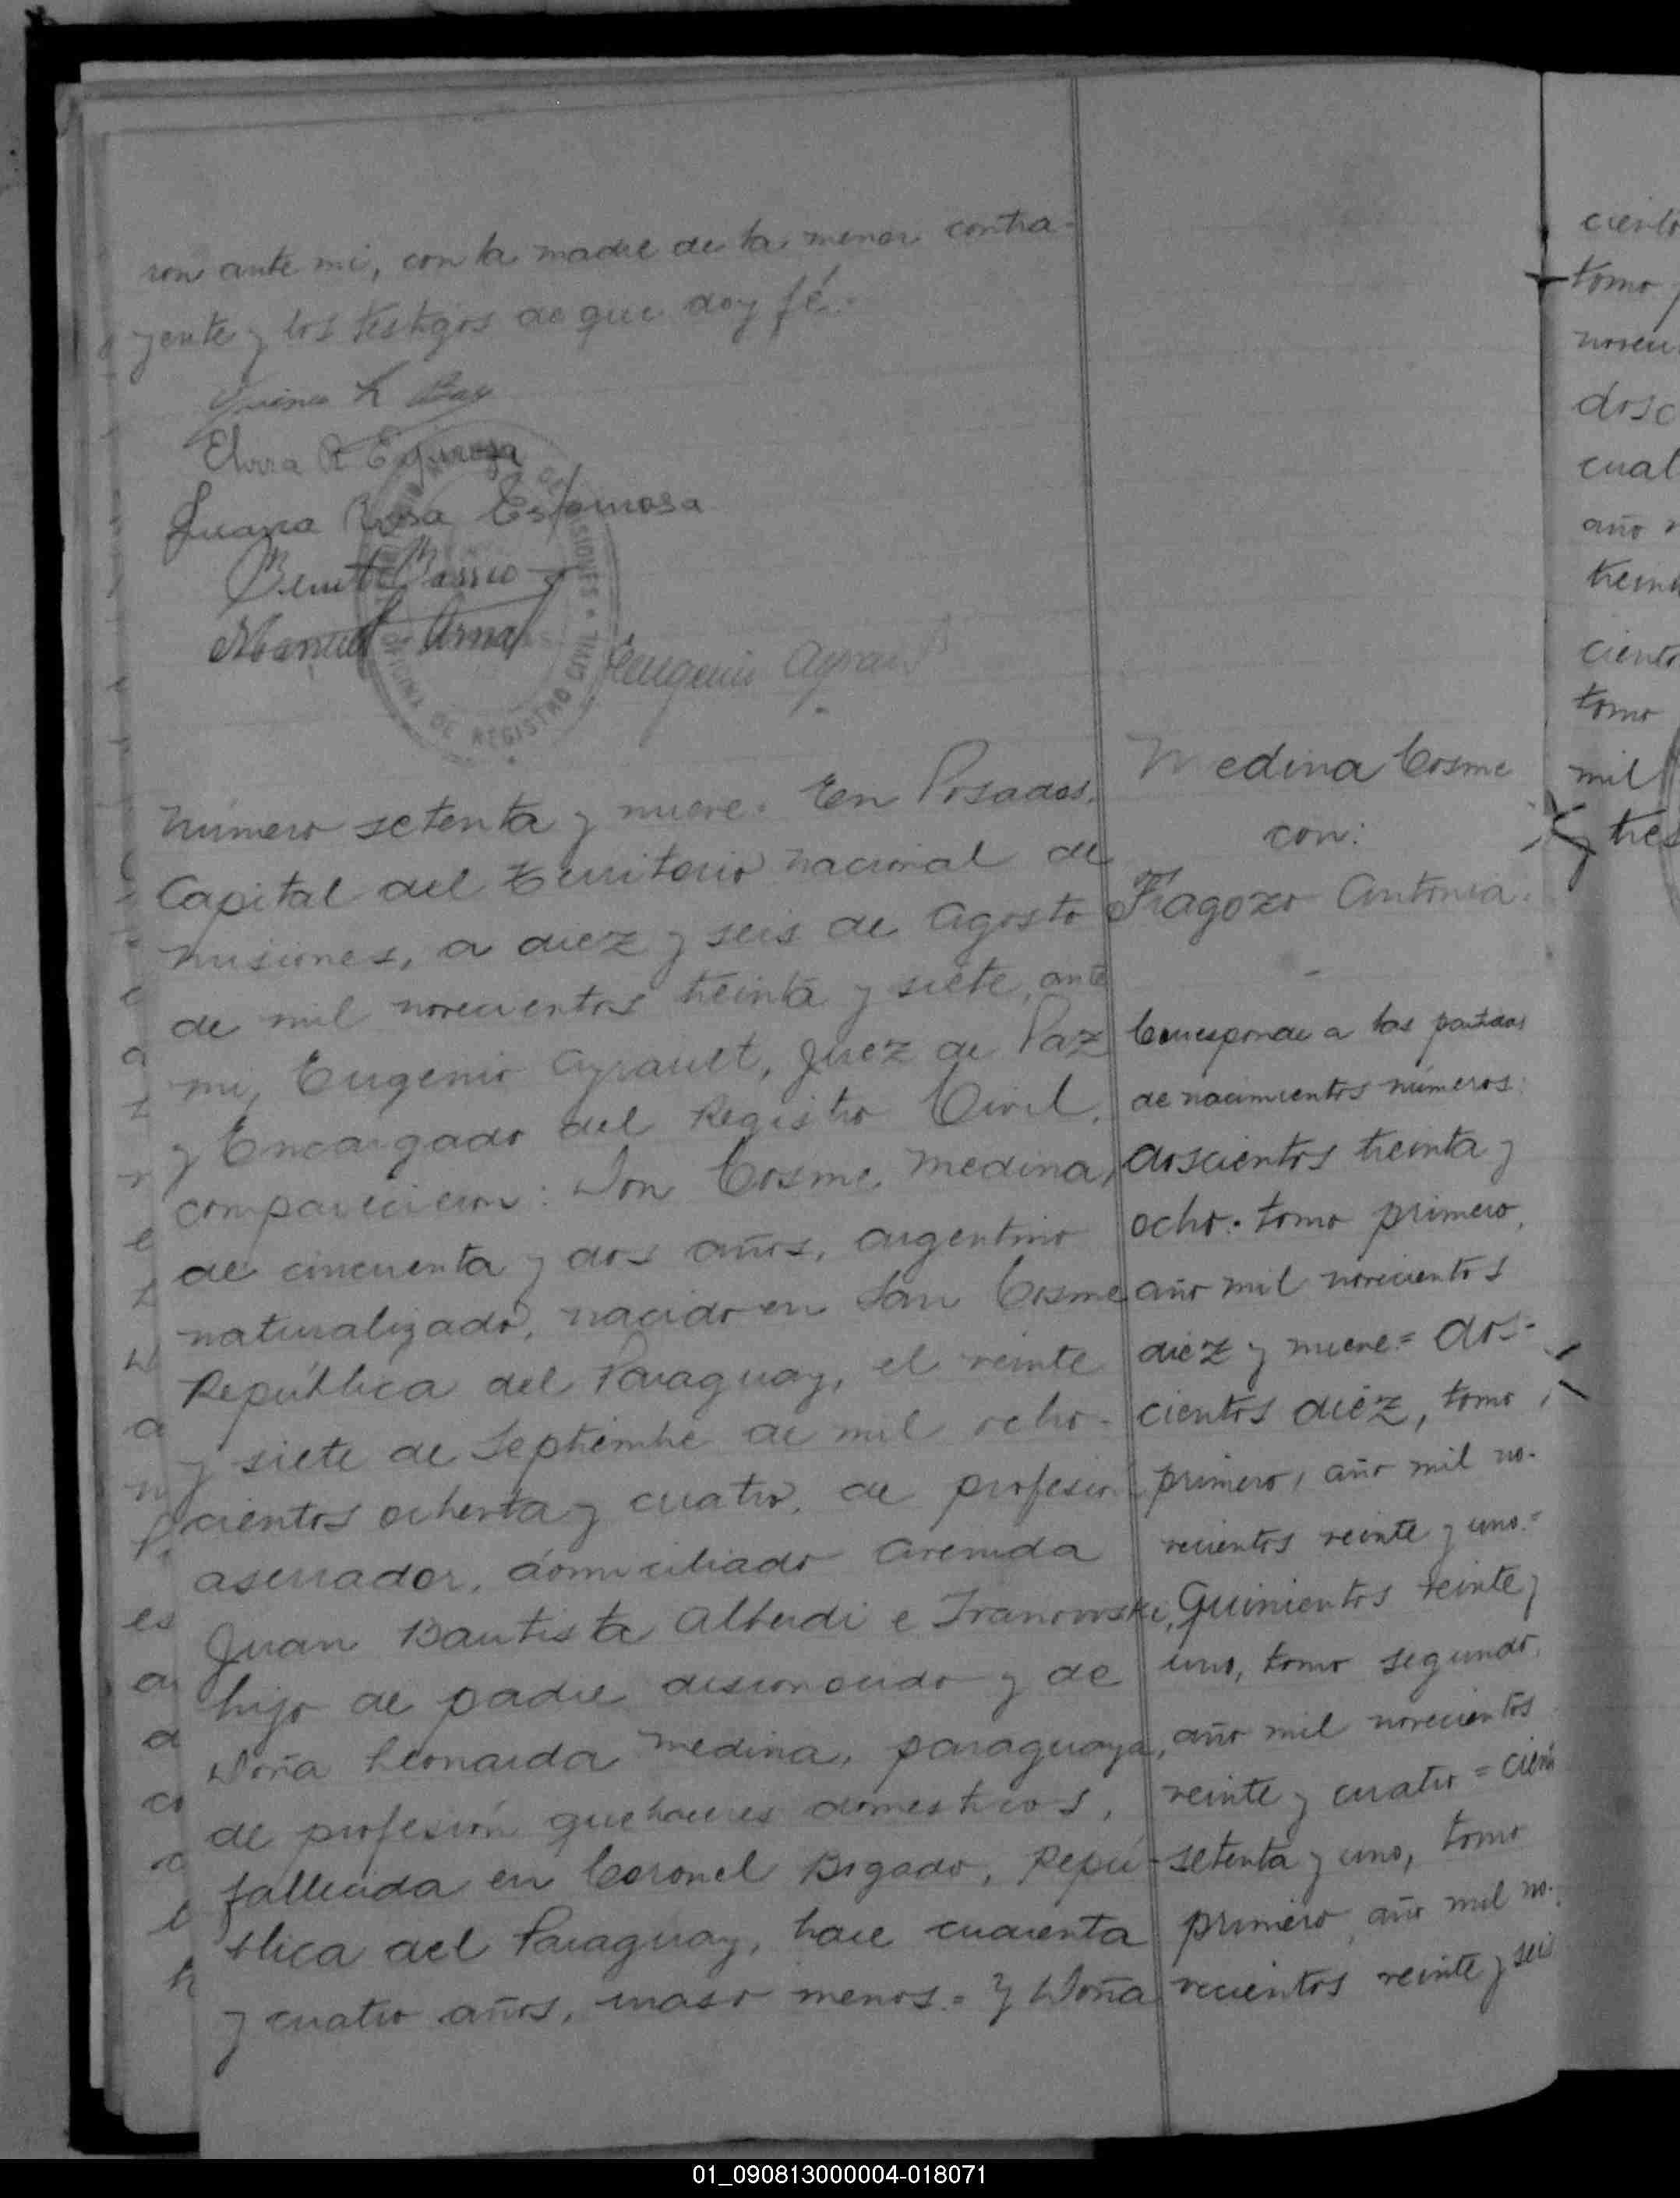 ron ante mi, con la madre de la menor contra-
yente y los testigos de que doy fé.-
Elvira R Espinoza
Juana Rosa Espinosa
Manuel
OFICINA DE REGISTRO CIVIL * MISIONES
Eugenio Ayrault
Número setenta y nueve. En Posadas,
Capital del Territorio nacional de
Misiones, a diez y seis de Agosto
de mil novecientos treinta y siete, ante
mi, Eugenio Ayrault, Juez de Paz
y Encargado del Registro Civil,
comparecieron: Don Cosme Medina,
de cincuenta y dos años, argentino
naturalizado, nacido en San Cosme
República del Paraguay, el veinte
y siete de Septiembre de mil ocho-
cientos ochenta y cuatro, de profesion
aserrador, domiciliado Avenida
Juan Bautista Alberdi e Ivanowski,
hijo de padre desconocido y de
Doña Leonarda Medina, paraguaya,
de profesión quehaceres domesticos,
fallecida en Coronel Bogado, Repú-
blica del Paraguay, hace cuarenta
y cuatro años, mas o menos.= Y Doña
Medina Cosme
con:
Fragozo Antonia.
-
Corresponde a las partidas
de nacimientos números:
doscientos treinta y
ocho. tomo primero,
año mil novecientos
diez y nueve.= dos-
cientos diéz, tomo
primero, año mil no-
vecientos veinte y uno.=
Quinientos veinte y
uno, tomo segundo,
año mil novecientos
veinte y cuatro = ciento
setenta y uno, tomo
primero, año mil no-
vecientos veinte y seis
tomo
dosc
cual
año
tomo
mil
y tres
01_090813000004-018071